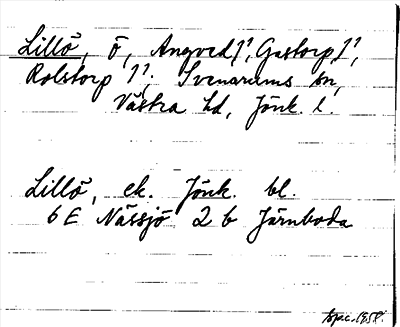 Lillö, ö, Angved 1¹, Gastorp 1¹,
Rolstorp 1¹; Svenarums sn,
Västra hd, Jönk. l.
Lillö, ek. Jönk. bl.
6E Nässjö 2 b Järnboda
top.c. 1958.